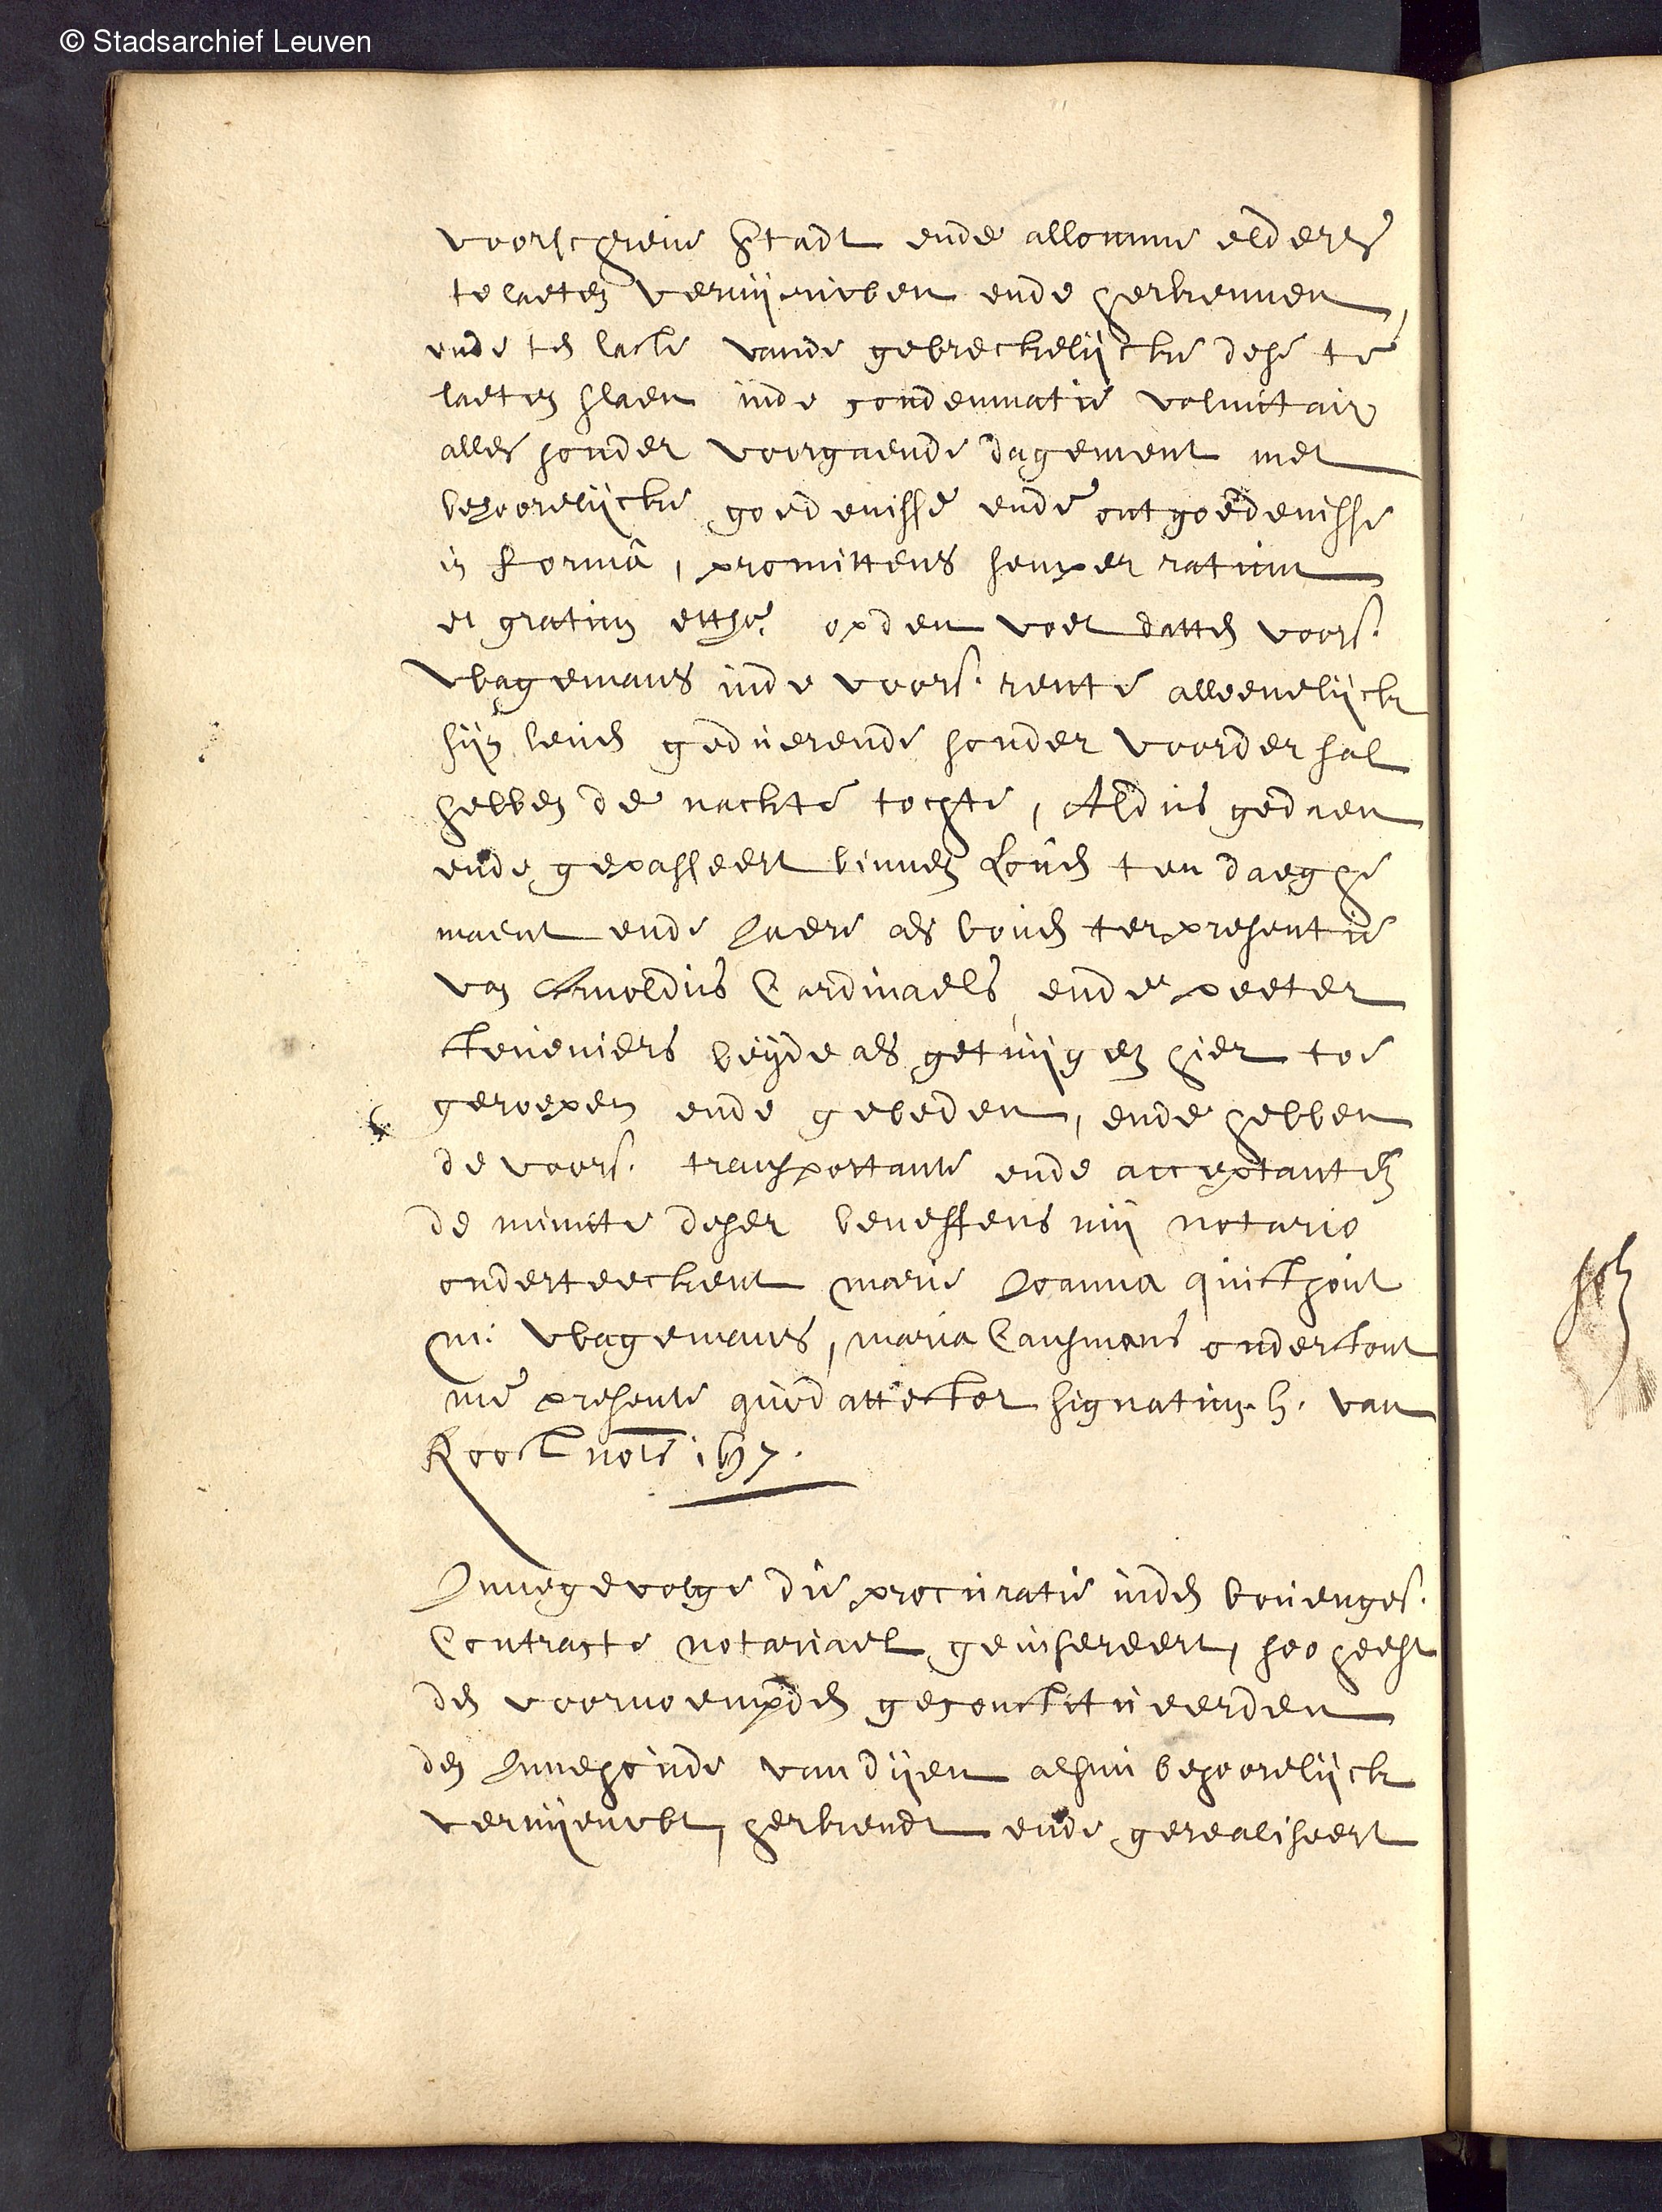 © Stadsarchief Leuven
voorschreve Stadt ende allomme elders
te laeten vernieuwen ende herkennen,
ende ten laste vande gebreckelijcke dese te
laeten slaen inde condemnatie volontair
alles sonder voorgaende dagement met
behoorelijcke goedenisse ende ontgoedenisse
in forma, promittens semper ratum
et gratum etc. opden voet datten voors.
Wagemans inde voors. rente alleenelijck
sijn leven geduerende sonder voorder sal
hebben de nackte tochte, Aldus gedaen
ende gepasseert binnen Loven ten daeghe
maent ende Jaere als boven ter presentie
van Arnoldus Cardinaels ende peeter
beyde als getuijgen hier toe
geroepen ende gebeden, ende hebben
de voors. transportante ende acceptanten
de minute deser beneffens mij notario
onderteeckent marie Joanna
m: Wagemans, maria onderstont
me presente quod attestor signatum h. van
Roost nots 1697.
Innegevolge die procuratie inden bovenges.
Contracte notariael geinsereert, soo heeft
den voornoempden geconstitueerden
den Innehoude van dijen alsnu behoorelijck
vernijeuwt, herkendt ende gerealiseert